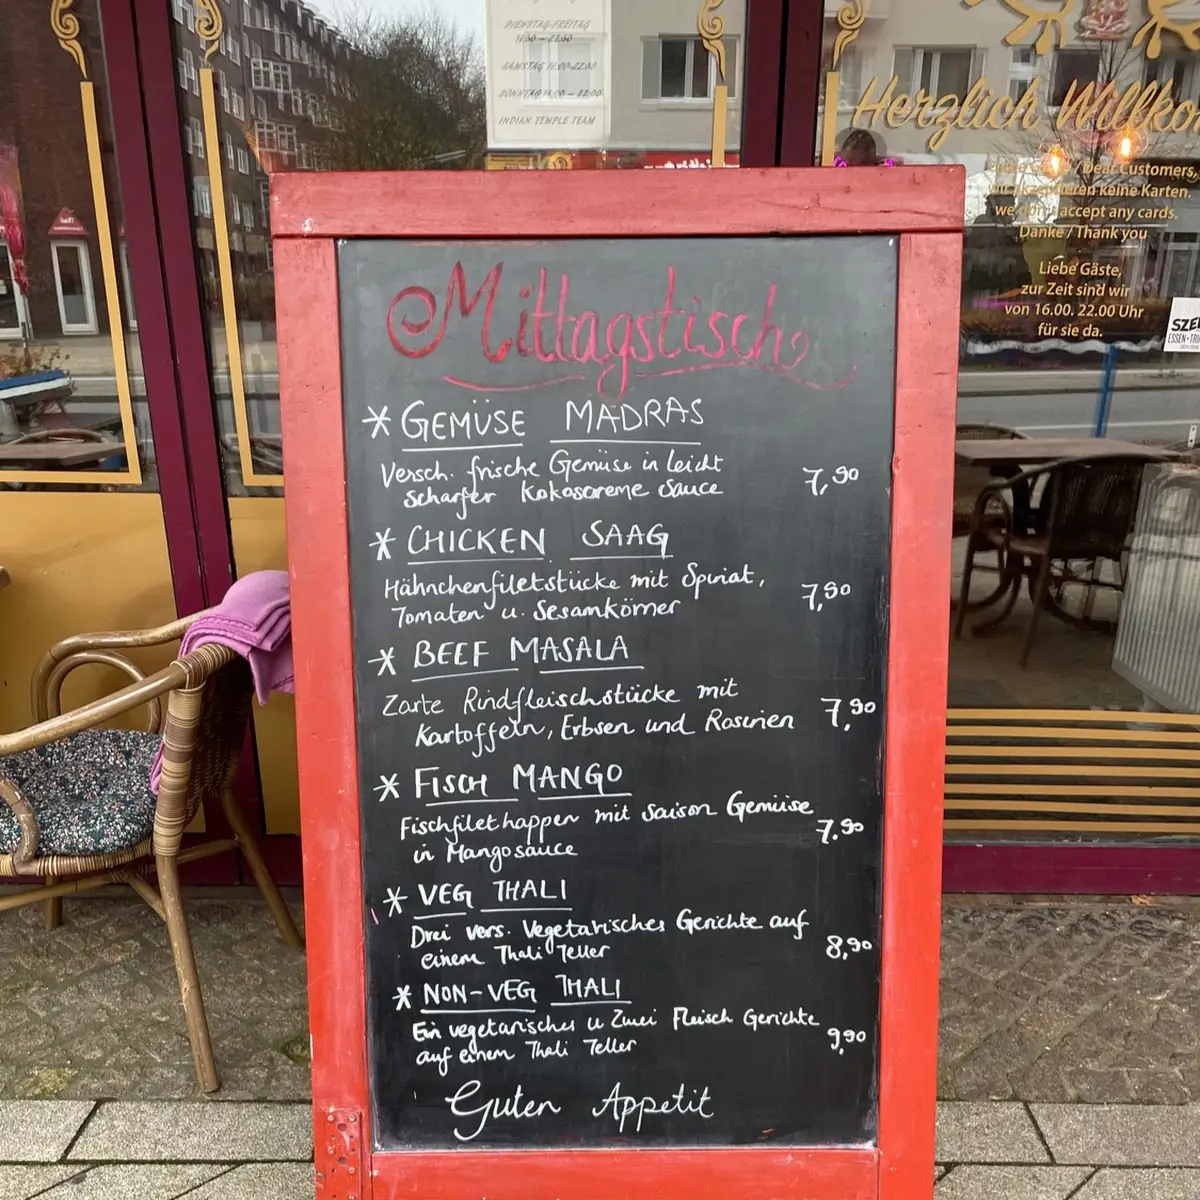 DIENSTAG-FREITAG
SAMSTAG 16:00-22:00
SONNTAG 16:00 - 22:00
INDIAN TEMPLE TEAM
Herzlich Willko
/ Dear Customers,
wir akzeptieren keine Karten.
we don't accept any cards.
Danke / Thank you
Liebe Gäste,
zur Zeit sind wir
von 16.00. 22.00 Uhr
für sie da.
SZE
ESSEN+TRI
Mittagstisch
* GEMÜSE MADRAS
Versch. frische Gemüse in leicht
scharfer Kokoscreme Sauce 7,90
* CHICKEN SAAG
Hähnchenfiletstücke mit Spinat,
Tomaten u. Sesamkörner 7,90
* BEEF MASALA
Zarte Rindfleischstücke mit
Kartoffeln, Erbsen und Rosinen 7,90
* FISCH MANGO
Fischfilethappen mit Saison Gemüse
in Mangosauce 7.90
* VEG THALI
Drei vers. Vegetarisches Gerichte auf
einem Thali Teller 8,90
* NON-VEG THALI
Ein vegetarisches u Zwei Fleisch Gerichte
auf einem Thali Teller 9,90
Guten Appetit